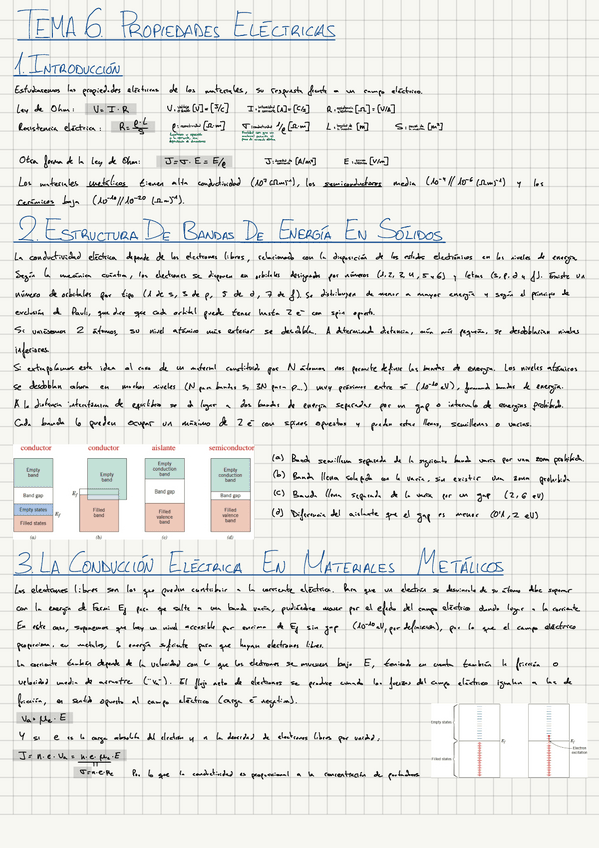 TEMA 6. PROPIEDADES ELÉCTRICAS
1. INTRODUCCIÓN
Estudiaremos las propiedades eléctricas de los materiales, su respuesta frente a un campo eléctrico.
Ley de Ohm: V = I · R V: [V] = [J/C] I: [A] = [C/s] R: [Ω] = [V/A]
Resistencia eléctrica: R = ρ·L/S ρ: [Ω·m] σ: 1/ρ [Ω·m] L: [m] S: [m²]
Otra forma de la Ley de Ohm: J = σ · E = E/ρ J: [A/m²] E: [V/m]
Los materiales metálicos tienen alta conductividad, los semiconductores media y los
cerámicos baja
2. ESTRUCTURA DE BANDAS DE ENERGÍA EN SÓLIDOS
La conductividad eléctrica depende de los electrones libres, relacionado con la disposición de los estados electrónicos en los niveles de energía.
Según la mecánica cuántica, los electrones se disponen en orbitales designados por números (1, 2, 3, 4, 5 y 6) y letras (s, p, d y f). Existe un
número de orbitales por tipo (1 de s, 3 de p, 5 de d, 7 de f). Se distribuyen de menor a mayor energía y según el principio de
exclusión de Pauli, que dice que cada orbital puede tener hasta 2 e⁻ con spin opuesto.
Si uniésemos 2 átomos, su nivel atómico más exterior se desdobla. A determinada distancia, aún más pequeña, se desdoblarían niveles
inferiores.
Si extrapolamos esta idea al caso de un material constituido por N átomos nos permite definir las bandas de energía. Los niveles atómicos
se desdoblan ahora en muchos niveles (N para bandas s, 3N para p...) muy próximos entre sí (10⁻¹⁰ eV), formando bandas de energía.
A la distancia interatómica de equilibrio se da lugar a dos bandas de energía separadas por un gap o intervalo de energías prohibida.
Cada banda la pueden ocupar un máximo de 2 e⁻ con spines opuestos y pueden estar llenas, semillenas o vacías.
conductor conductor aislante semiconductor
Empty band Empty band Empty conduction band Empty conduction band
Band gap Ef Band gap Band gap
Empty states Ef
Filled states Filled band Filled valence band Filled valence band
(a) (b) (c) (d)
(a) Banda semillena separada de la siguiente banda vacía por una zona prohibida.
(b) Banda llena solapada con la vacía, sin existir una zona prohibida
(c) Banda llena separada de la vacía por un gap (2, 6 eV)
(d) Diferencia del aislante que el gap es menor (0'1, 2 eV)
3. LA CONDUCCIÓN ELÉCTRICA EN MATERIALES METÁLICOS
Los electrones libres son los que pueden contribuir a la corriente eléctrica. Para que un electrón se desvincule de su átomo debe superar
con la energía de Fermi Ef para que salte a una banda vacía, pudiéndose mover por el efecto del campo eléctrico dando lugar a la corriente.
En este caso, suponemos que hay un nivel accesible por encima de Ef sin gap (10⁻¹⁰ eV, por definición), por lo que el campo eléctrico
proporciona, en metales, la energía suficiente para que hayan electrones libres.
La corriente también depende de la velocidad con la que los electrones se mueven bajo E, teniendo en cuenta también la fricción o
velocidad media de arrastre. El flujo neto de electrones se produce cuando las fuerzas del campo eléctrico igualan a las de
fricción, en sentido opuesto al campo eléctrico (carga e⁻ negativa).
Y si e es la carga absoluta del electrón y n la densidad de electrones libres por unidad;
Por lo que la conductividad es proporcional a la concentración de portadores
Empty states
Ef Ef
Electron excitation
Filled states